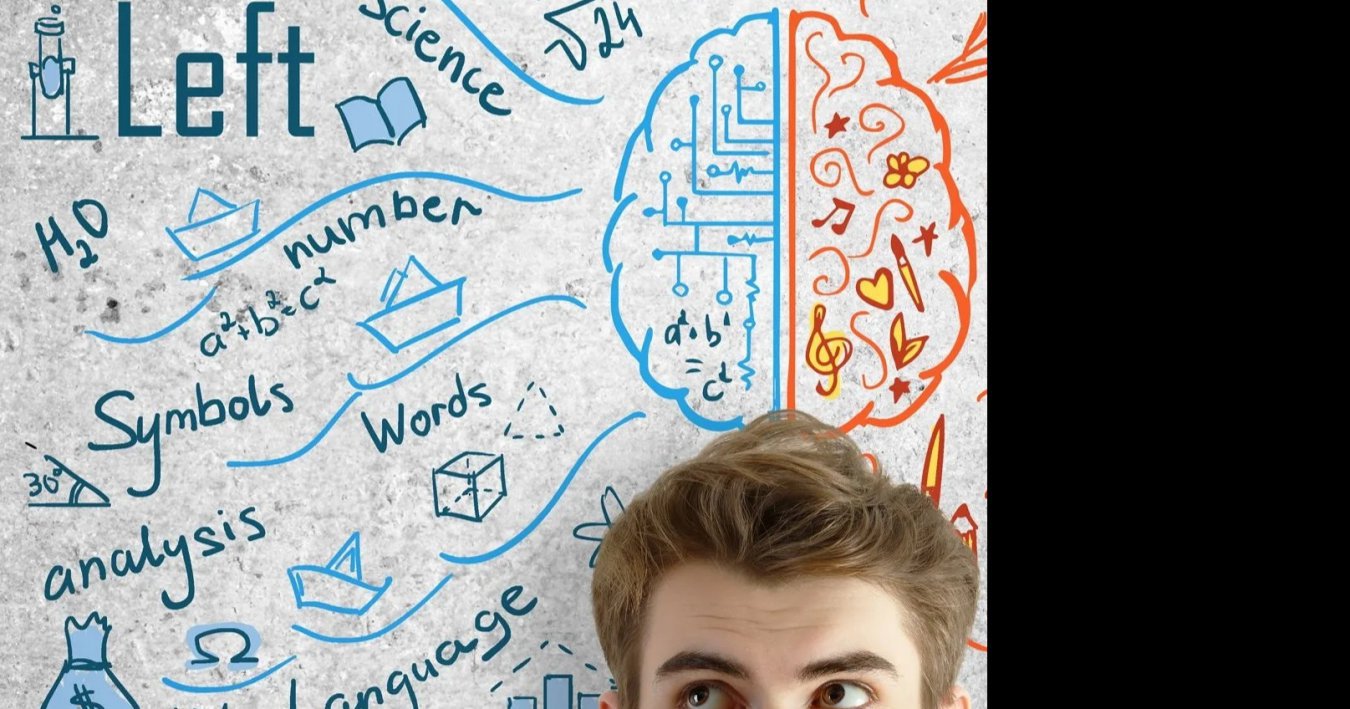 Left
Science
√24
H₂O
number
a²+b²=c²
Symbols
Words
30°
analysis
Ω
Language
$
a²+b²
=c²